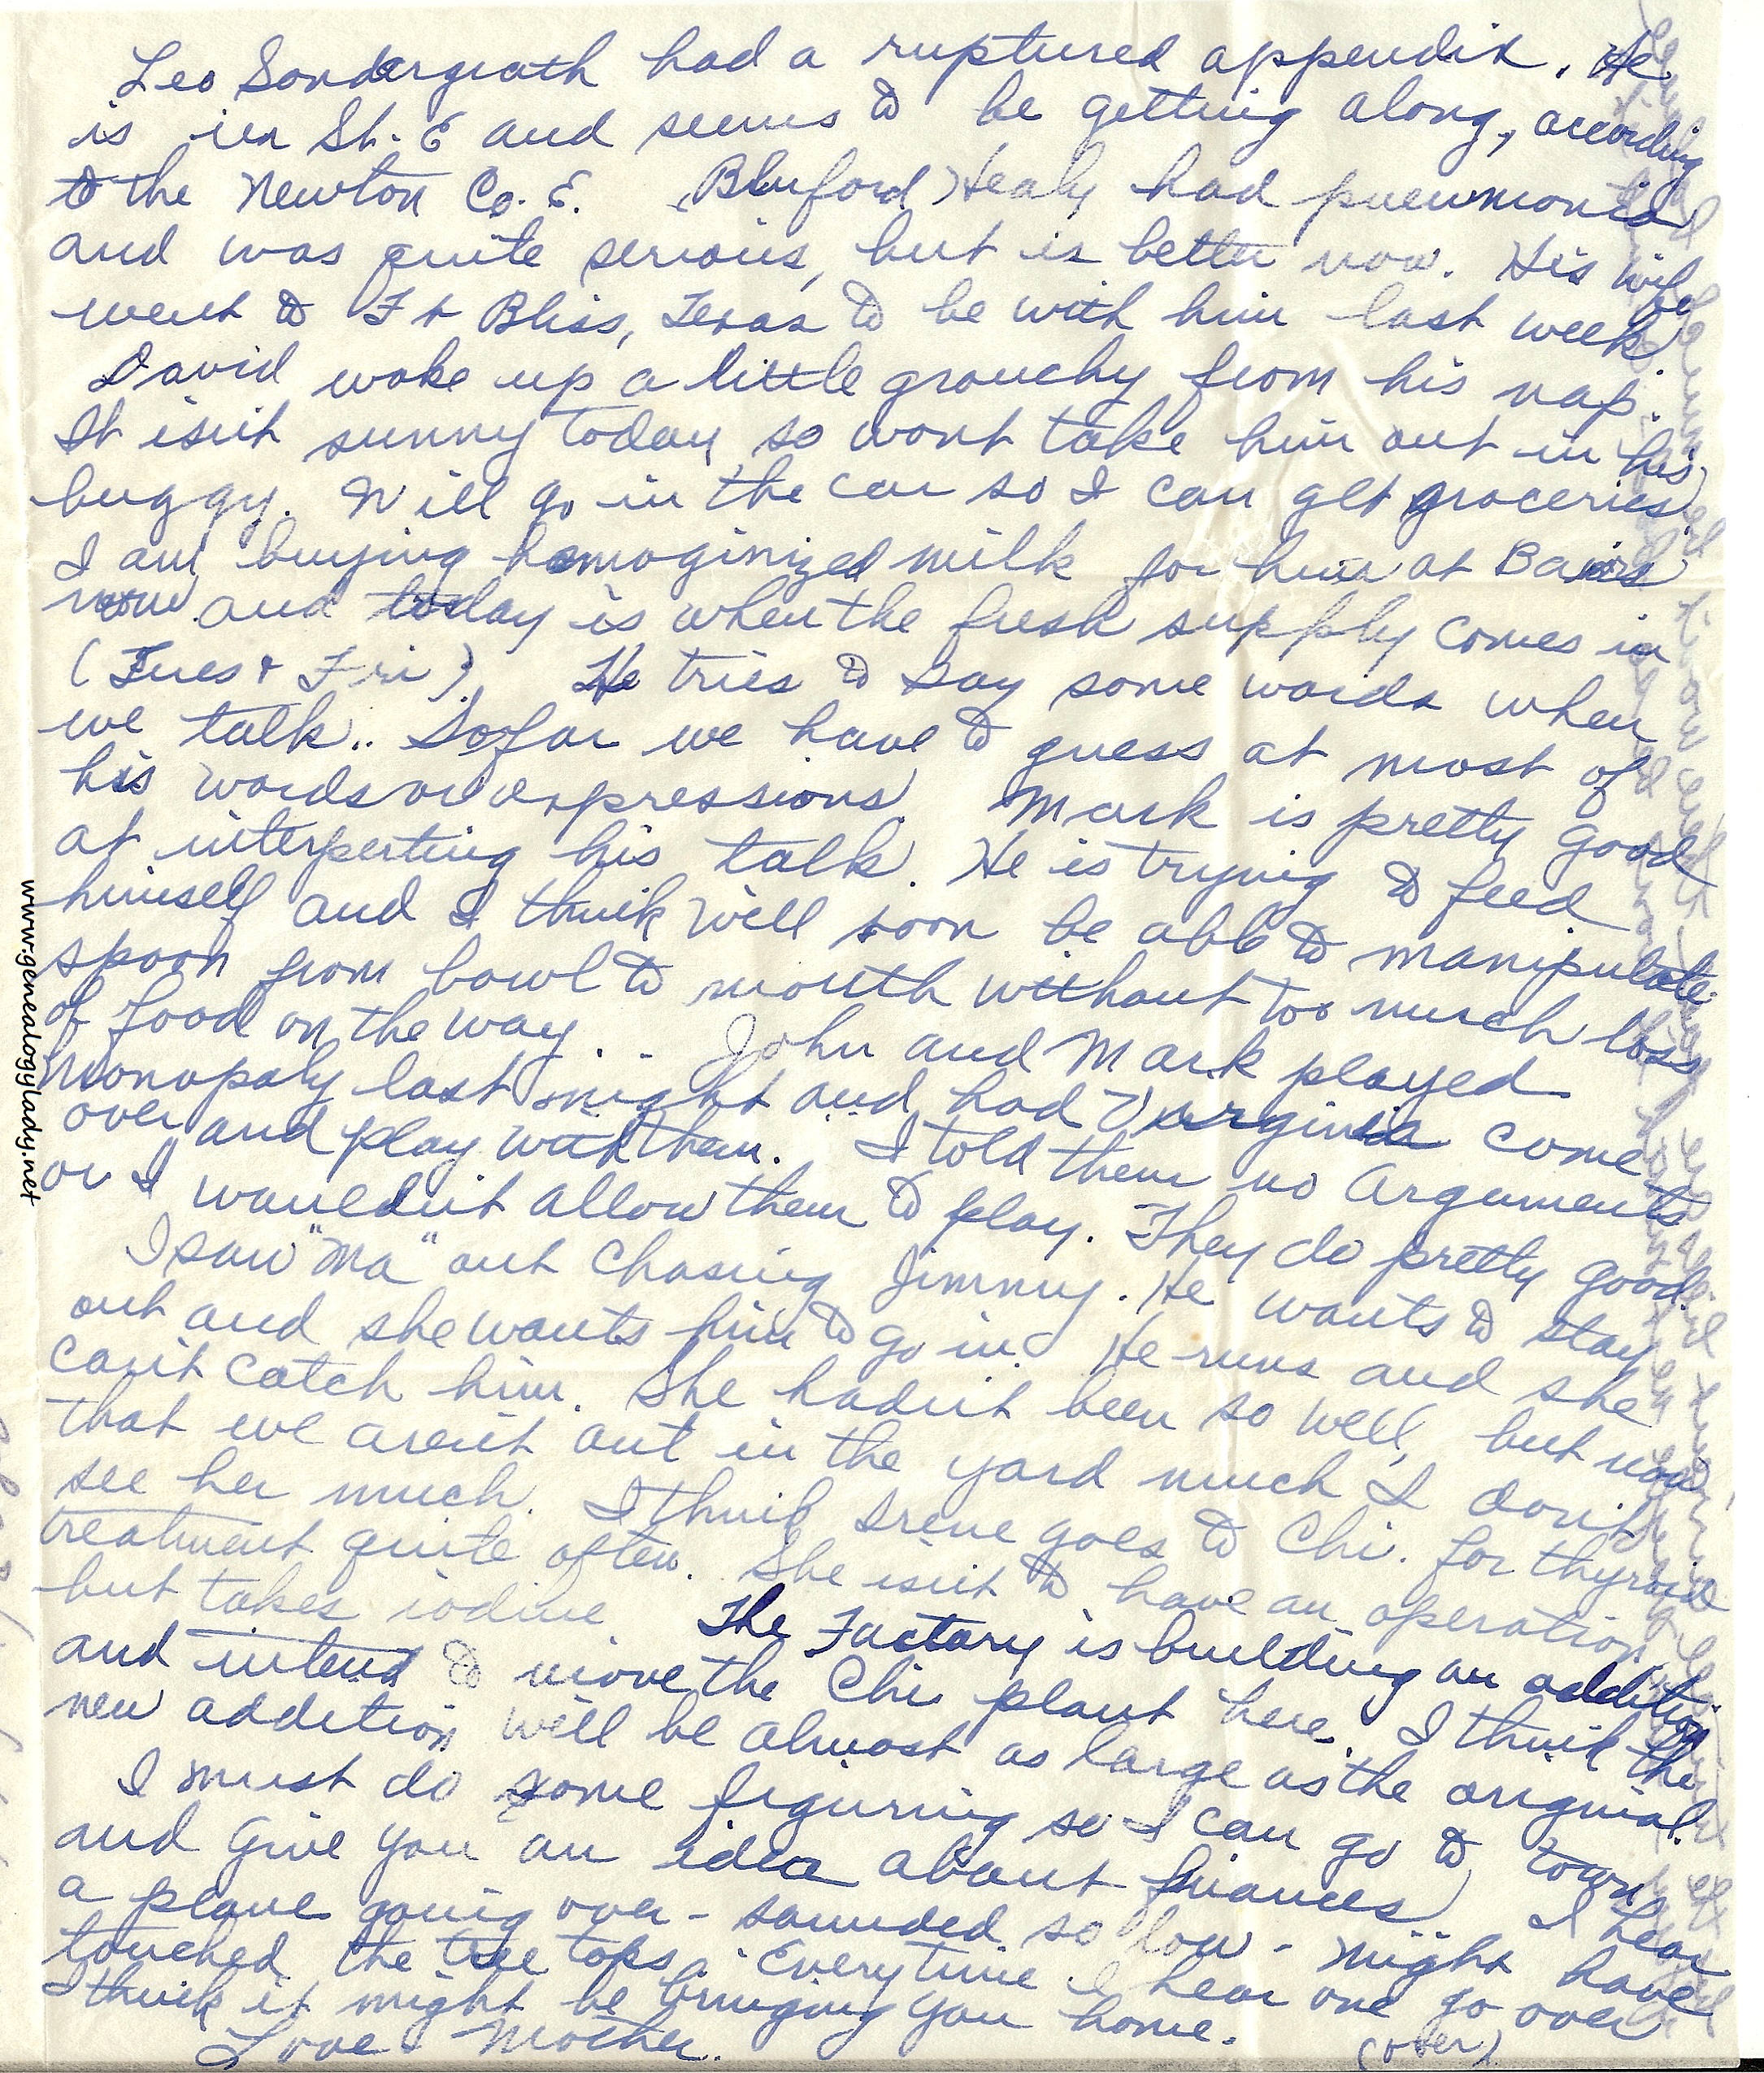 Leo Sondergrath had a ruptured appendix. He
is in St. E and seems to be getting along, according
to the Newton Co. E. Bluford Healy had pneumonia
and was quite serious, but is better now. His wife
went to Ft Bliss, Texas to be with him last week.
David woke up a little grouchy from his nap.
It isn't sunny today so wont take him out in his
buggy. Will go in the car so I can get groceries.
I am buying homoginized milk for him at
now and today is when the fresh supply comes in
(Tues & Fri). He tries to say some words when
we talk.. So far we have to guess at most of
his words or expressions. Mark is pretty good
at interperting his talk. He is trying to feed
himself and I think will soon be able to manipulate
spoon from bowl to mouth without too much loss
of food on the way. . - John and Mark played
Monopoly last night and had Virginia come
over and play with them. I told them no arguments
or I wouldn't allow them to play. They do pretty good.
I saw "Ma" out chasing Jimmy. He wants to stay
out and she wants him to go in. He runs and she
can't catch him. She hadn't been so well, but now
that we aren't out in the yard much I don't
see her much. I think Irene goes to Chi. for thyroid
treatment quite often. She isn't to have an operation
but takes iodine. The Factory is building an addition
and intend to move the Chi plant here. I think the
new addition will be almost as large as the original.
I must do some figuring so I can go to town
and give you an idea about finances. I hear
a plane going over - sounded so low - might have
touched the tree tops. Everytime I hear one go over
I think it might be bringing you home.
Love Mother.
(over)
www.genealogylady.net